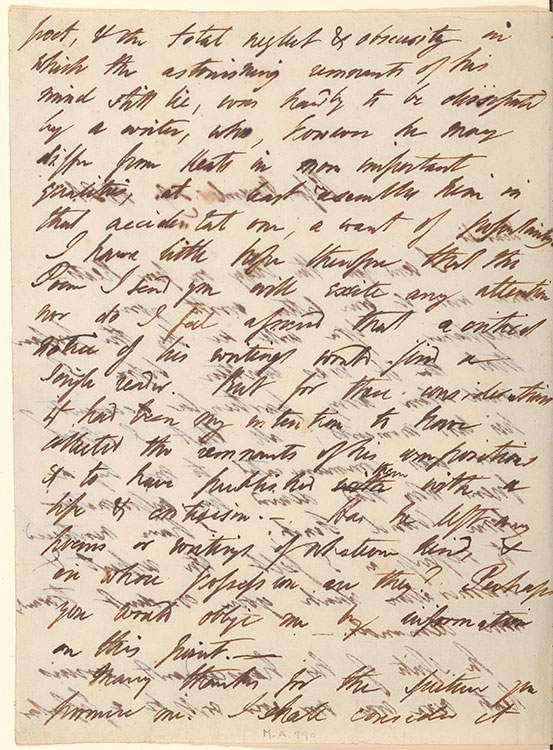 poet, & the total neglect & obscurity in
which the astonishing remnants of his
mind still lie, was hardly to be dissipated
by a writer, who, however he may
differ from Keats in more important
qualities at least resembles him in
that accidental one, a want of popularity
I have little hope therefore that the
Poem I send you will excite any attention
nor do I feel afraid that a critical
notice of his writings would find a
single reader. But for these considerations
it had been my intention to have
collected the remnants of his compositions
& to have published them with a
life & criticism. — Has he left any
poems or writings of whatever kind, &
in whose possession are they? Perhaps
you would oblige me by information
on this point. —
Many thanks for the picture you
promise me. I shall consider it
M.A. 790